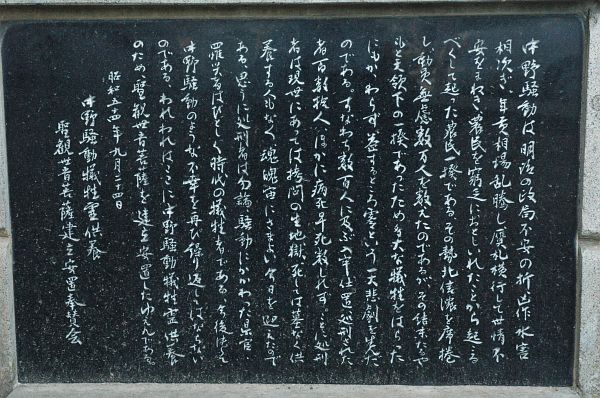 中野騒動は明治の政局不安の折凶作水害
相次ぎ、年貢相場乱勝し贋札横行して世情不
安をまねき農民を窮乏におとしいれたことから起こる
べくして起った農民一揆である。その勢北信濃を席捲
し、動員無慮数万人を数えたのであるが、その結末たるや
天領下の一揆であったため多大な犠牲をはらった
にもかかわらず益するところ零という一大悲劇を生んだ
のである。すなわち数百人に及ぶ処刑された
者百数拾人、ほかに病死早死数しれず、しかも処刑
者は現世にあっては拷問の生地獄死しては墓なく供
養する人もなく魂魄宙にさまよい今日を迎えたので
ある。思うに処刑者は勿論騒動にかかわった県官
罹災者はひとしく時代の犠牲者である。今後決して
中野騒動のような不幸を再び繰り返してはならない
のである。われわれはここに中野騒動犠牲霊供養
のため、聖観世音菩薩を建立安置したゆえんである。
昭和五十四年九月二十四日
中野騒動犠牲霊供養
聖観世音菩薩建立安置奉賛会